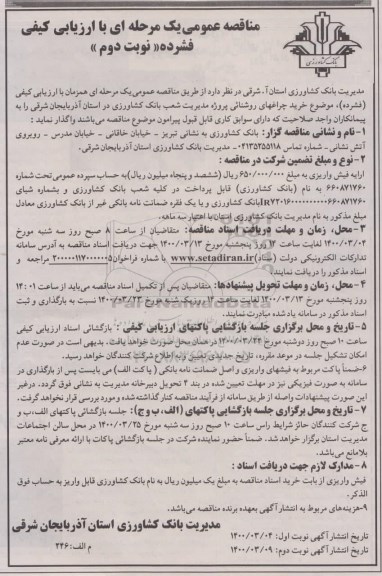 مناقصه عمومی یک مرحله ای با ارزیابی کیفی
فشرده« نوبت دوم »
بانک کشاورزی
مدیریت بانک کشاورزی استان آ. شرقی در نظر دارد از طریق مناقصه عمومی یک مرحله ای همزمان با ارزیابی کیفی
(فشرده)، موضوع خرید چراغهای روشنائی پروژه مدیریت شعب بانک کشاورزی در استان آذربایجان شرقی را به
پیمانکاران واجد صلاحیت که دارای سوابق کاری قابل قبول پیرامون موضوع مناقصه می‌باشند واگذار نماید :
۱- نام و نشانی مناقصه گزار: بانک کشاورزی به نشانی تبریز - خیابان خاقانی - خیابان مدرس - روبروی
آتش نشانی - شماره تماس ۰۴۱۳۵۲۵۵۱۱۸ - مدیریت بانک کشاورزی استان آذربایجان شرقی.
۲- نوع و مبلغ تضمین شرکت در مناقصه :
ارایه فیش واریزی به مبلغ ۶۵۰/۰۰۰/۰۰۰ ریال (ششصد و پنجاه میلیون ریال) به حساب سپرده عمومی تحت شماره
۶۶۰۸۷۱۷۶۰ به نام (بانک کشاورزی) قابل پرداخت در کلیه شعب بانک کشاورزی و بشماره شبای
بانک کشاورزی و یا یک فقره ضمانت نامه بانکی غیر از بانک کشاورزی معادل
مبلغ مذکور به نام مدیریت بانک کشاورزی استان با اعتبار سه ماهه.
۳- محل، زمان و مهلت دریافت اسناد مناقصه: متقاضیان از ساعت ۸ صبح روز سه شنبه مورخ
۱۴۰۰/۰۳/۰۴ لغایت ساعت ۱۴ روز پنجشنبه مورخ ۱۴۰۰/۰۳/۱۳ جهت دریافت اسناد مناقصه به آدرس سامانه
تدارکات الکترونیکی دولت (ستاد) www.setadiran.ir با شماره فراخوان مراجعه و
اسناد مذکور را دریافت نمایند.
۴- محل، زمان و مهلت تحویل پیشنهادها: متقاضیان پس از تکمیل اسناد مناقصه می‌باید از ساعت ۱۴:۰۱
روز پنجشنبه مورخ ۱۴۰۰/۰۳/۱۳ لغایت ساعت ۱۴ روز یکشنبه مورخ ۱۴۰۰/۰۳/۲۳ نسبت به بارگذاری و ثبت
اسناد مذکور در سامانه یاد شده مبادرت نمایند.
۵- تاریخ و محل برگزاری جلسه بازگشایی پاکتهای ارزیابی کیفی : بازگشائی اسناد ارزیابی کیفی
ساعت ۱۰ صبح روز دوشنبه مورخ ۱۴۰۰/۰۳/۲۴ در همان محل صورت خواهد یافت. بدیهی است در صورت عدم
امکان تشکیل جلسه در موعد مقرره، تاریخ جدیدی تعیین و به اطلاع شرکت کنندگان خواهد رسید.
۶- ضمناً پاکت مربوط به فیشهای واریزی و اصل ضمانت نامه بانکی ( پاکت الف) می بایست پس از بارگذاری در
سامانه به صورت فیزیکی نیز در مهلت تعیین شده در بند ۴ تحویل دبیرخانه مدیریت به نشانی فوق گردد. درغیر
این صورت پیشنهادات واصله از طریق سامانه از فرآیند مناقصه کنار گذاشته شده و مورد بررسی قرار نخواهد گرفت.
۷- تاریخ و محل برگزاری جلسه بازگشایی پاکتهای (الف، ب و ج): جلسه بازگشائی پاکتهای الف، ب و
ج شرکت کنندگان حائز شرایط راس ساعت ۱۰ صبح روز سه شنبه مورخ ۱۴۰۰/۰۳/۲۵ در محل سالن اجتماعات
مدیریت استان برگزار خواهد شد. ضمناً حضور نماینده شرکت در جلسه بازگشائی پاکات با ارائه معرفی نامه معتبر
بلامانع می‌باشد.
۸- مدارک لازم جهت دریافت اسناد :
فیش واریزی از بابت خرید اسناد مناقصه به مبلغ یک میلیون ریال به نام بانک کشاورزی قابل واریز به حساب فوق
الذکر.
۹- هزینه‌های مربوط به انتشار آگهی بعهده برنده مناقصه می‌باشد.
تاریخ انتشار آگهی نوبت اول: ۱۴۰۰/۰۳/۰۴
تاریخ انتشار آگهی نوبت دوم: ۱۴۰۰/۰۳/۰۹
مدیریت بانک کشاورزی استان آذربایجان شرقی
م الف: ۲۴۶